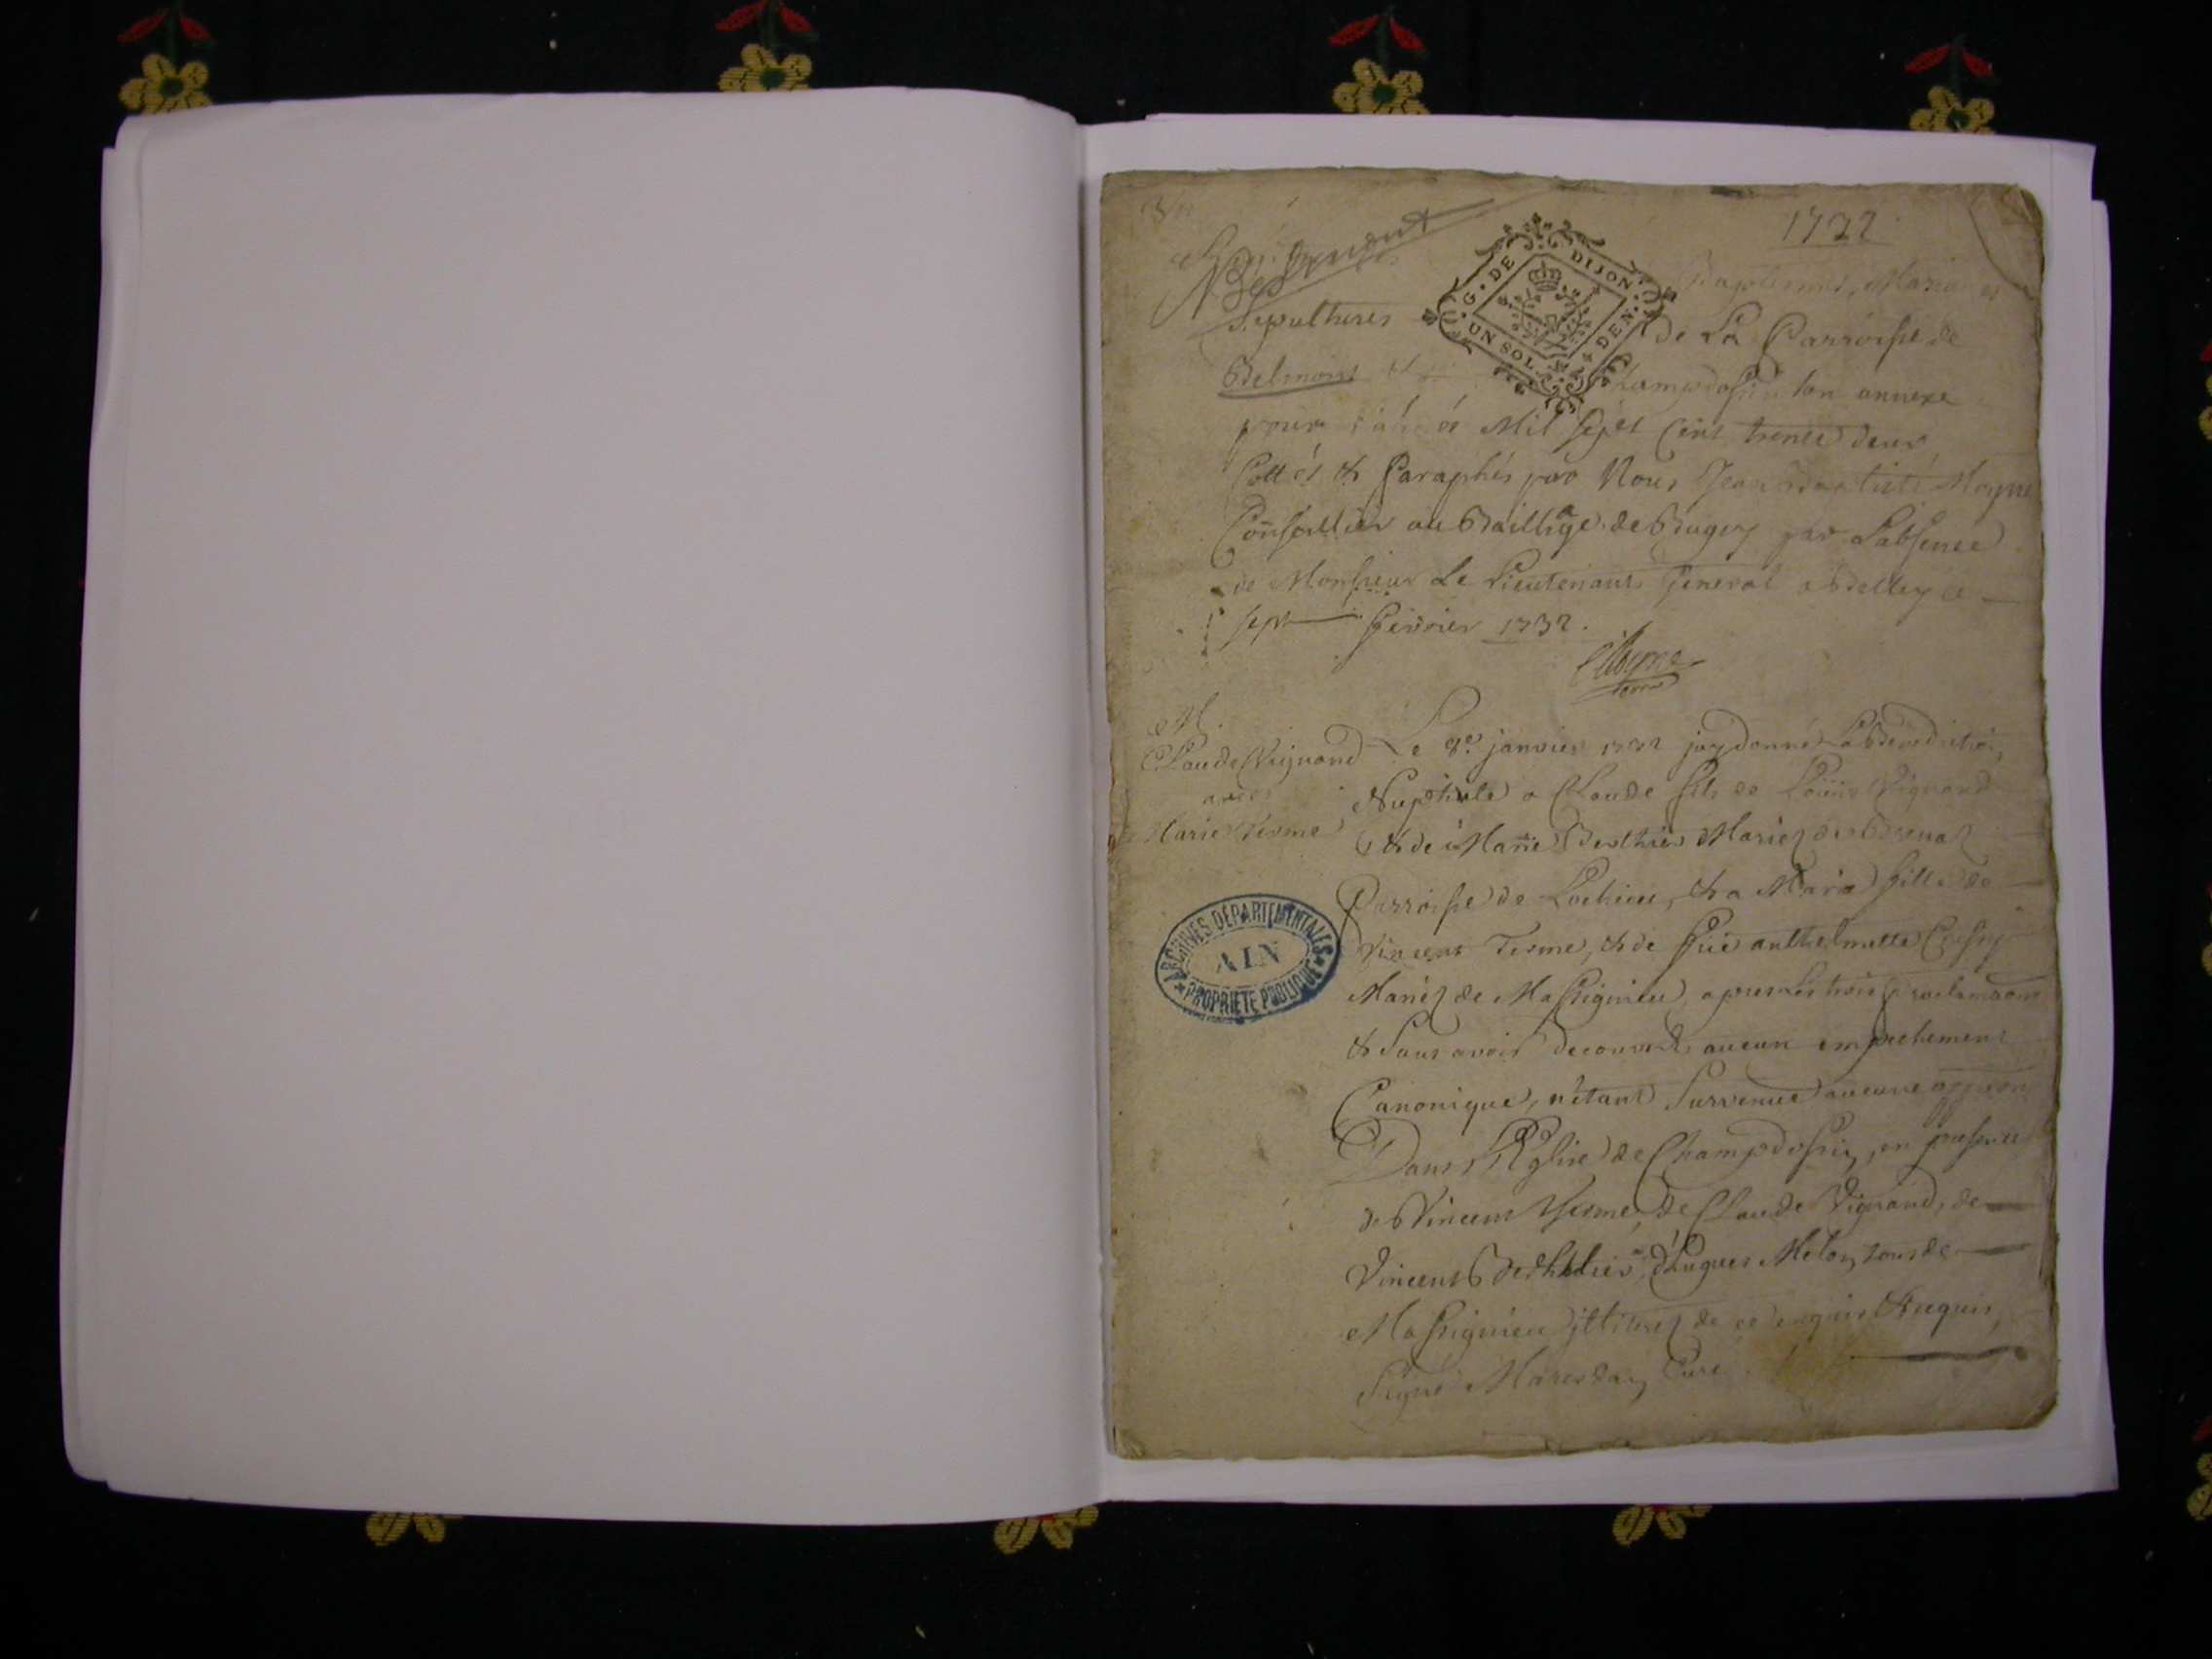 1732
G. DE DIJON
UN SOL DEN.
Baptismes, Mariages
Sepulthures de La Parroisse de
Belmont & Champdossin son annexe
pour Mil sept Cent trente deux
Cottés & Paraphés par Nous Jean Baptiste Moyne
Conseillier au Bailliage de Bugey par Labsence
de Monsieur Le Lieutenant General a Belley ce
sept fevrier 1732.
Moyne
M.
Claude Vignand
avec
Marie Terme
Le 8e. janvier 1732 jay donné La Benediction
Nuptiale a Claude fils de Louis Vignand
& de Marie Berthier Mariez de
Parroisse de Lochieu, & a Marie fille de
Vincent Terme, & de anthelmette
Mariez de Massignieu, apres les trois proclamaons
& sans avoir decouvert aucun empechement
Canonique, n'etant survenue aucune oppeon
Dans l'Eglise de Champdossin, en presence
de Vincent Terme, de Claude Vignand, de
Vincent d'hugues Meloz tous de
Massignieu illiterez de ce enquis & requis,
Signé Curé
ARCHIVES DÉPARTEMENTALES
AIN
PROPRIÉTÉ PUBLIQUE